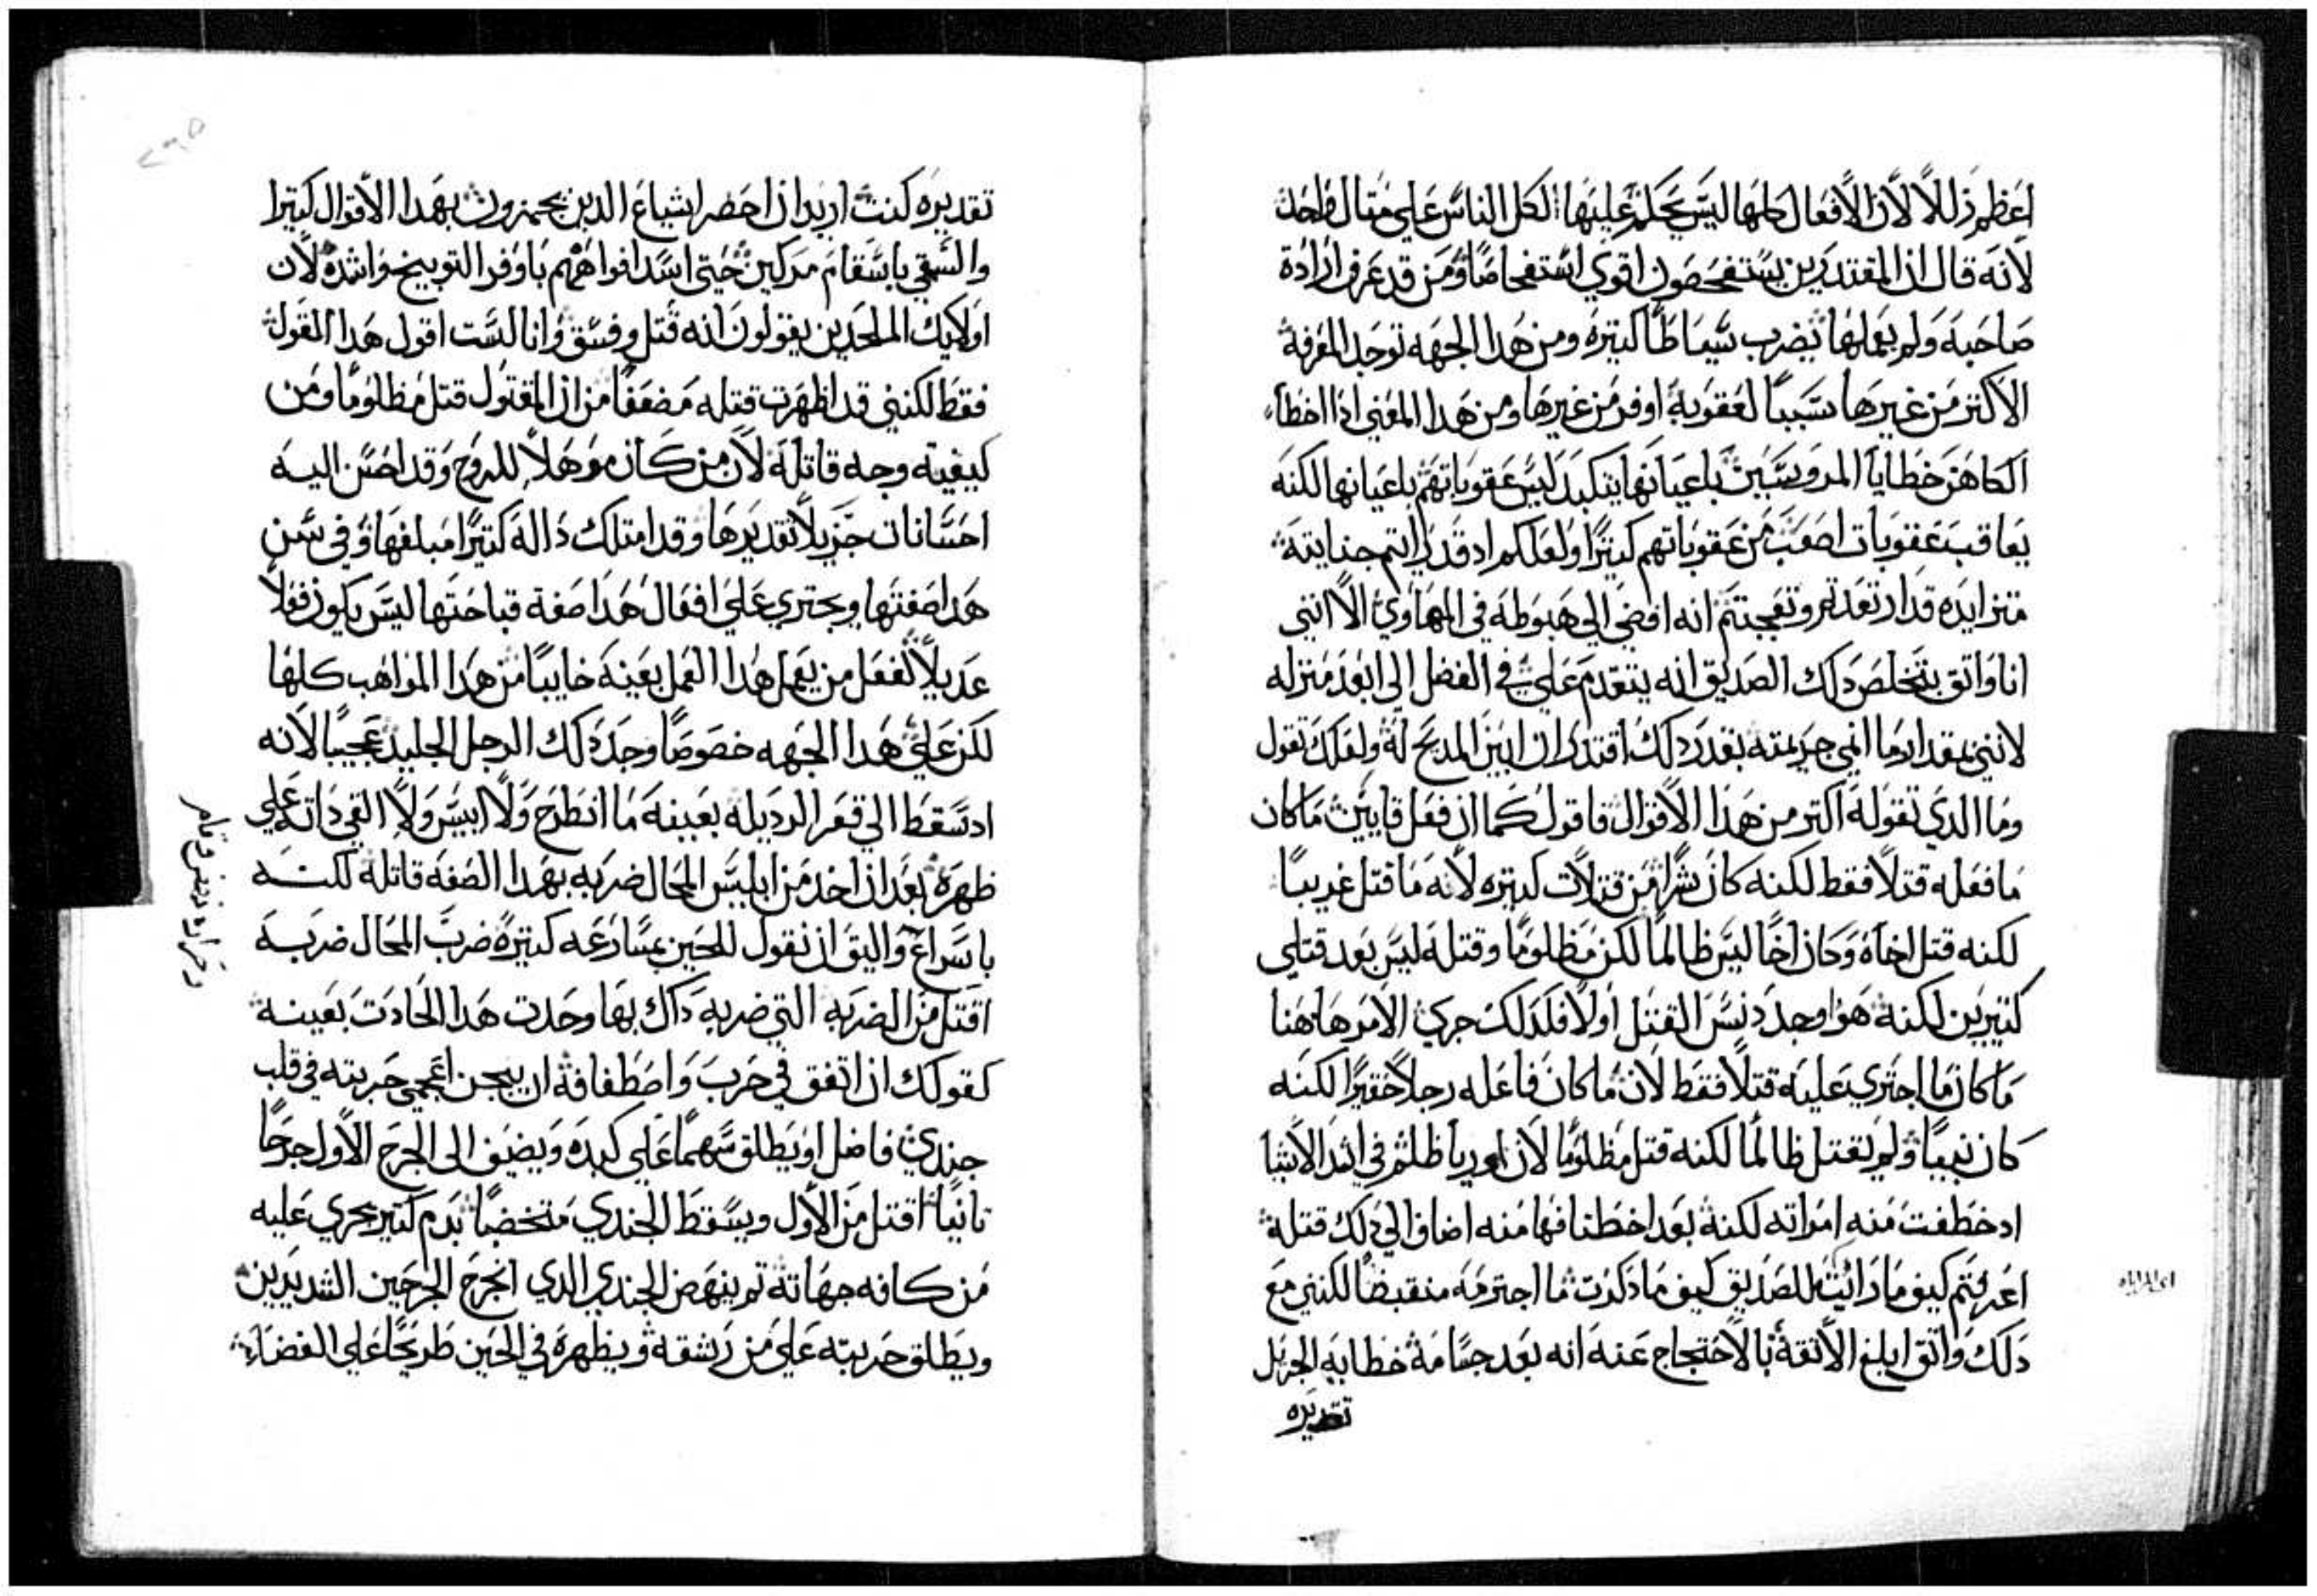 اعَظم زللاً لاَن الاًفعال كلها ليسَ يحكم عليها لكل الناسَ علي مثال واحد
لاَنه قال ان المقتدرين يسَتفحصَون اقوي اسَتفحاصَاً ومَن قد عَرف ارادة
صَاحبه ولم يعملها يضرب سَياطاً كتيره ومن هَدا الجهه توجد المعَرفة
الاكتر من غيرها سَبباً لعَقوبة اوفر من غيرها ومن هَدا المعَني ادا اخطاء
الكاهَن خطايا المروسَين باعيانها يتكبد ليسَ عقوباتهم باعيانها لكنه
يعَاقب عَقوبات اصعَب من عَقوباتهم كتيراً ولعَلكم اد قد رايتم جنايته
متزايده قد ارتعدتم وتعجبتم انه افضي الي هَبوطه في المهَاوي الاَ انني
انا واتق بتخلص دلك الصَديق انه يتقدم عَلي في الفضل الي ابعَد منزله
لانني بمقدار ما انمي جريمته بقدر دلك اقتدر ان ابين المديح له ولعَلك تقول
وما الدي تقوله اكتر من هَدا الاًقوال فاقول كما ان فعَل قايين ما كان
مَا فعَله قتلاً فقط لكنه كان شراً من قتلاَت كتيره لاَنه مَا قتل غريباً
لكنه قتل اخاه وكان اخاً ليسَ ظالماً لكن مظلوماً وقتله ليسَ بعَد قتلي
كتيرين لكنه هَو اوجد دنسَ القتل اولاً فكدلك جري الاَمر هَاهنا
مَا كان مَا اجتري عَليه قتلاً فقط لاَن ما كان فاعَله رجلاً حقيراً لكنه
كان نبياً ولم يقتل ظالماً لكنه قتل مظلوماً لاَن اوريا ظلم في اشد الاَشيا
اد خطفت منه امراته لكنه بعَد اخطتافها منه اضاف الي دلك قتله
اعَرفتم كيف ما راَيت للصَديق كيف ما دكرت ما اجترمه منقبضاً لكنني مع
دَلك واتق ابلغ الاَتقة بالاًحتجاج عَنه انه بعَد جسَامة خطايه الجزيل
تقديره
تقديره كنت اريد ان احَضر اشياعَ الدين يحمزون بهَدا الاًقوال كتيرا
والسَقمي باسَقام مركين حَتي اسَد افواهَهم باوفر التوبيخ واشده لاَن
اولايك الملحَدين يقولون انه قتل وفسَق وانا لسَت اقول هَدا القول
فقط لكنني قد اظهَرت قتله مَضعَفاً من ان المقتول قتل مظلوماً ومن
كيفيته وجه قاتله لاَن من كان موهَلاً للروح وقد احسَن اليه
احسَانات جزيلاً تقديرها وقد امتلك دَاله كتيراً مبلغها وفي سَن
هَدا صَفتها ويجتري عَلي افعَال هَدا صَفة قباحَتها ليسَ يكون فعَلاً
عَديلاً لفعَل من يعَمل هَدا العَمل بعَينه خايباً من هَدا المواهَب كلها
لكن عَلي هَدا الجهه خصَوصَاً وجد دلك الرجل الجليد عَجيباً لاَنه
اد سَقط الي قعَر الرديله بعَينه مَا انطرح وَلاً اييسَ وَلاَ القي داته عَلي
ظهَره بعَد ان اخد من ابليسَ المحَال ضربه بهَدا الصَفة قاتله لكنه
باسَراع واليق ان نقول للحَين بمسَارعَه كتيره ضرب المحَال ضربه
اقتل من الضربه التي ضربه دَاك بها وحَدت هَدا الحَادت بعَينه
كقولك ان اتفق في حَرب وَاصَطفافه ان يسجن اعَجمي حَربته في قلب
جندي فاضل او يطلق سَهماً عَلي كبده ويضيف الي الجرح الاَول جرحاً
تانياً اقتل من الاَول ويسَقط الجندي متخضباً بدم كتير يجري عَليه
من كافه جهاته تم ينهض الجندي الدي انجرح الجرحَين الشديدين
ويطلق حَربته عَلي من رشقه ويظهره في الحَين طريحاً عَلي الفضاء